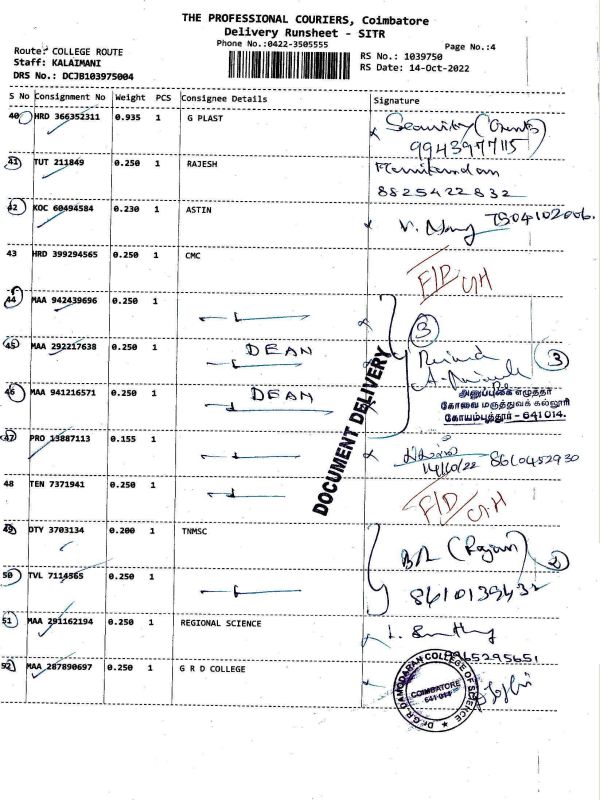 THE PROFESSIONAL COURIERS, Coimbatore
Delivery Runsheet - SITR
Phone No.:0422-3505555
Page No.:4
Route: COLLEGE ROUTE
Staff: KALAIMANI
DRS No.: DCJB103975004
RS No.: 1039750
RS Date: 14-Oct-2022
S No Consignment No Weight PCS Consignee Details Signature
40 HRD 366352311 0.935 1 G PLAST Security
9943977115
41 TUT 211849 0.250 1 RAJESH
8825422832
42 KOC 60494584 0.230 1 ASTIN 7504102006.
43 HRD 399294565 0.250 1 CMC F/D
44 MAA 942439696 0.250 1
3
45 MAA 292217638 0.250 1 DEAN 3
46 MAA 941216571 0.250 1 DEAN
DOCUMENT DELIVERY
அனுப்புகை எழுத்தர்
கோவை மருத்துவக் கல்லூரி
கோயம்புத்தூர் - 641 014.
47 PRO 13887113 0.155 1
14/10/22 8610452930
48 TEN 7371941 0.250 1 F/D
49 DTY 3703134 0.200 1 TNMSC (Rajan) 2
50 TVL 7114565 0.250 1 8610139432
51 MAA 291162194 0.250 1 REGIONAL SCIENCE
8965295651
52 MAA 287890697 0.250 1 G R D COLLEGE
Dr.G.R.DAMODARAN COLLEGE OF SCIENCE
COIMBATORE
641 014